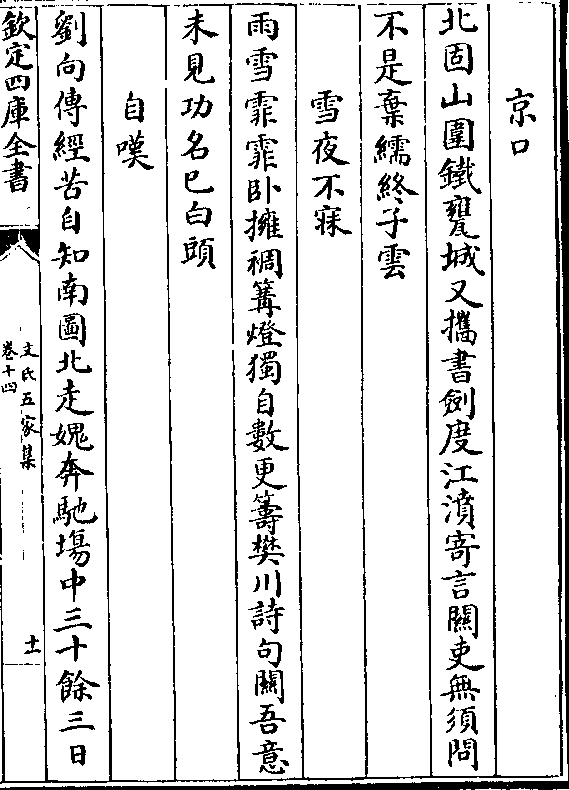 京口
北固山圍鐵甕城又攜書劍度江濆寄言關吏無須問
不是棄繻終子雲
雪夜不寐
雨雪霏霏卧擁裯篝燈獨自數更籌樊川詩句關吾意
未見功名已白頭
自嘆
劉向傳經苦自知南圖北走媿奔馳塲中三十餘三日
欽定四庫全書
文氏五家集
卷十四
十一